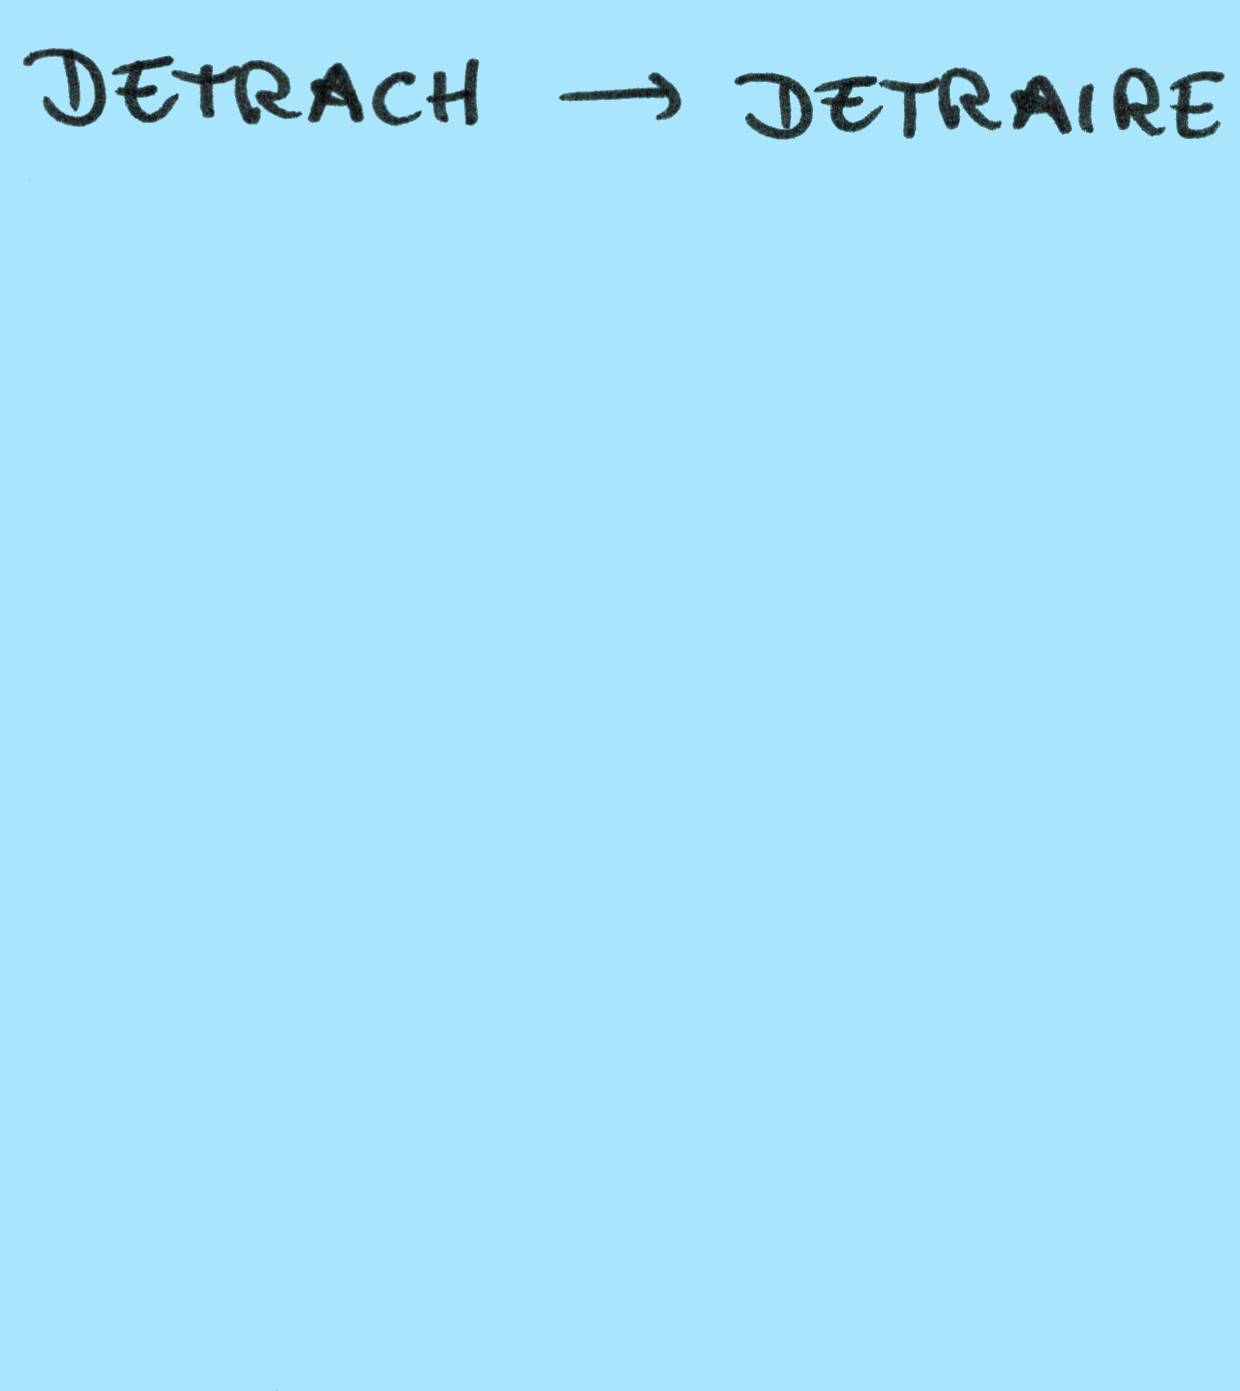 DETRACH → DETRAIRE